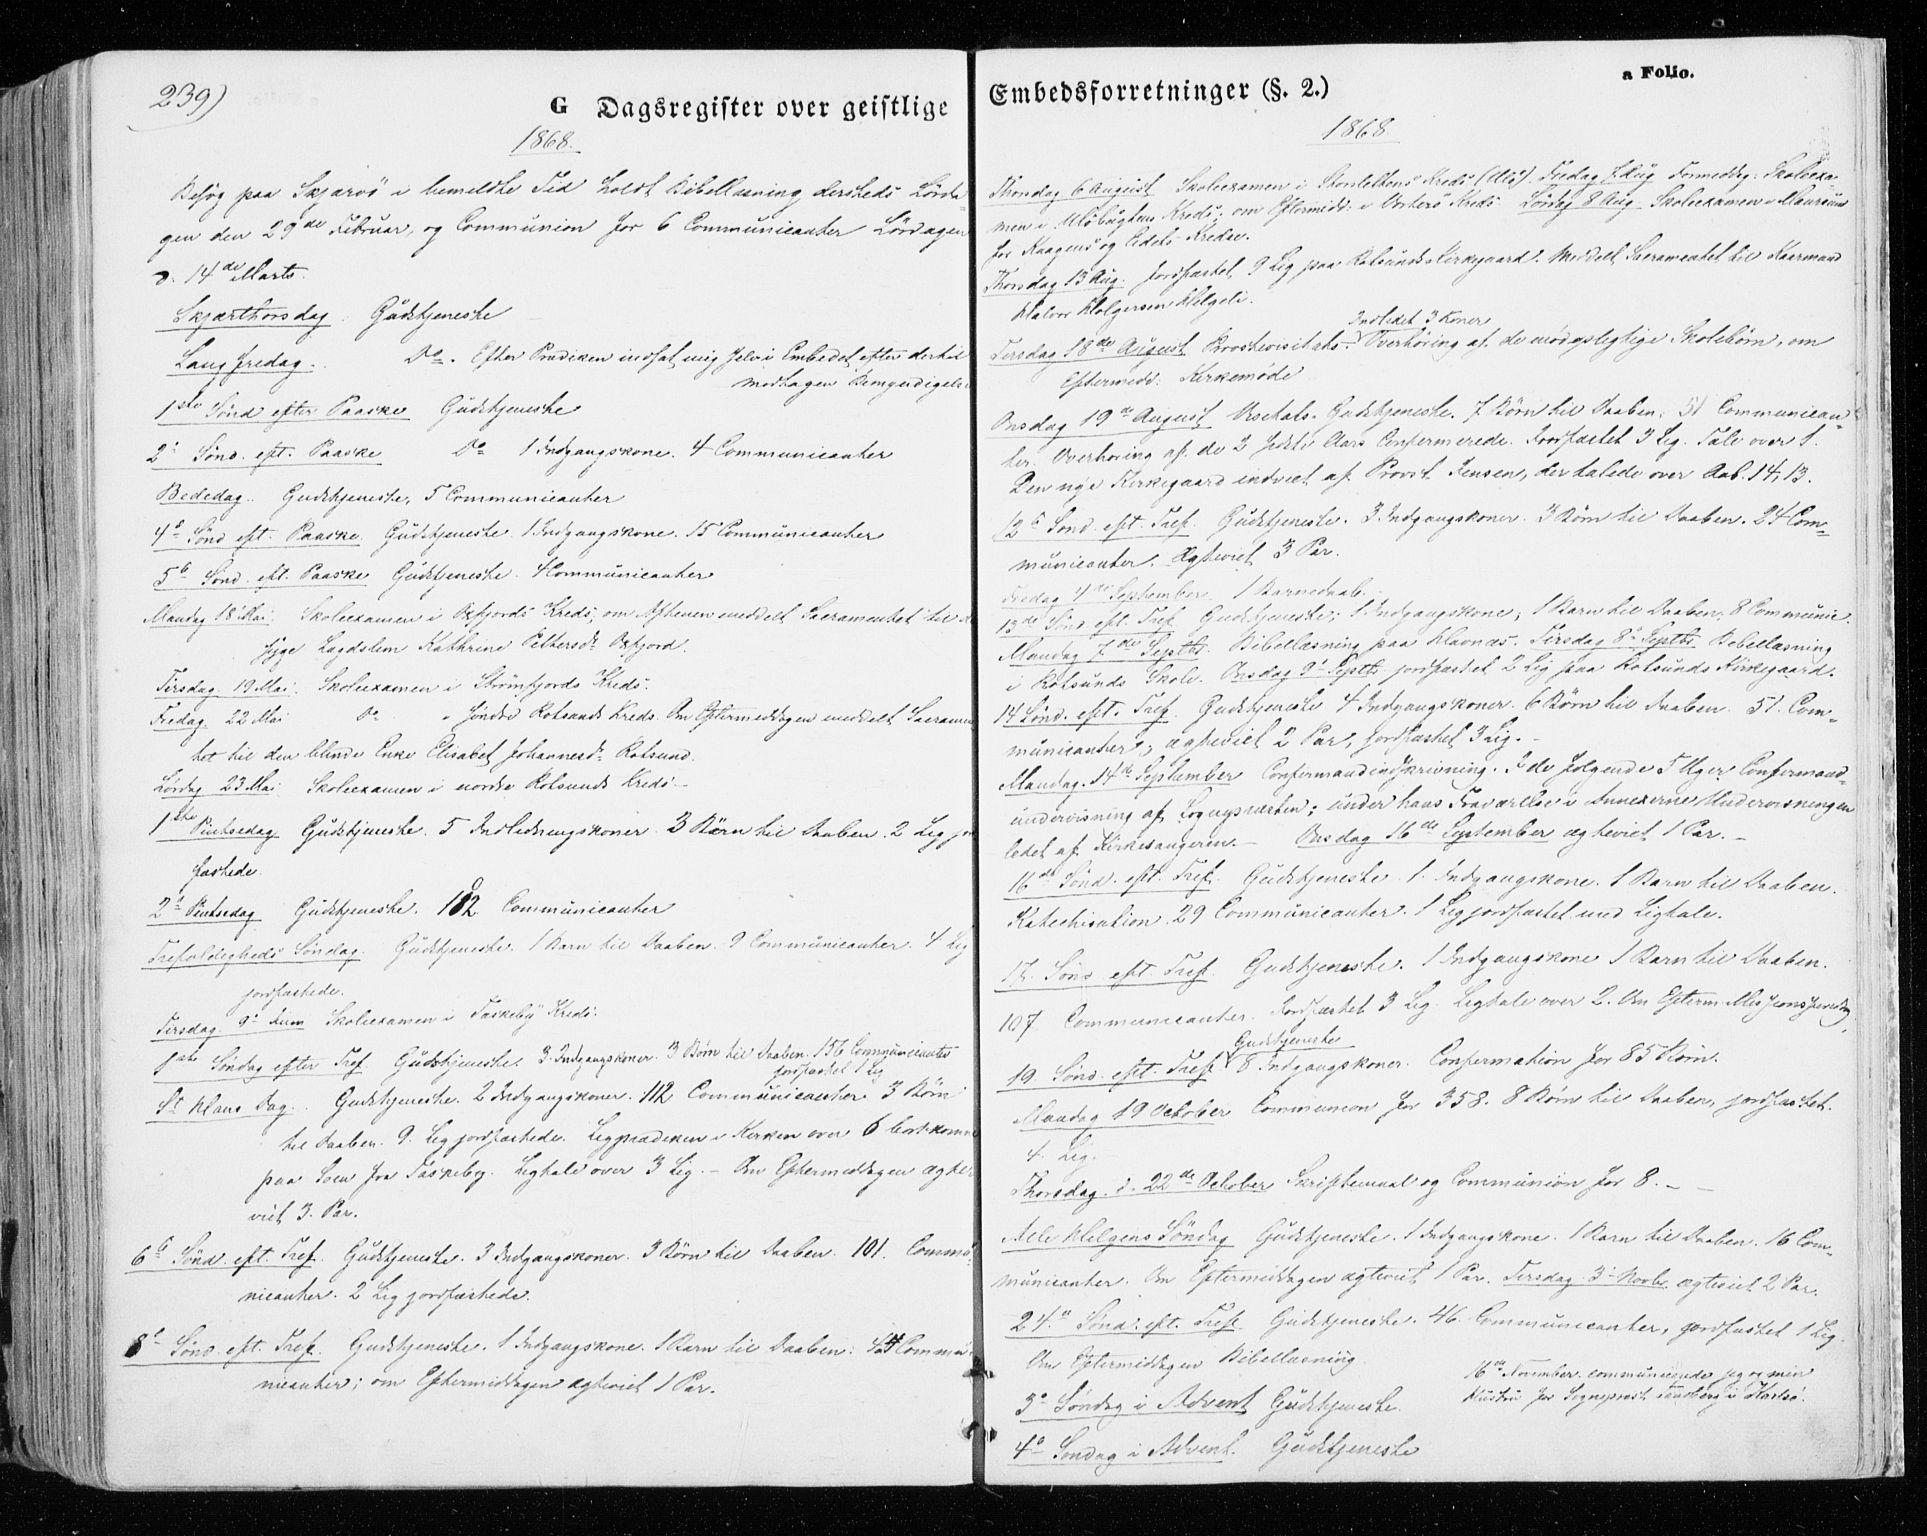 239)
G Dagsregister over geistlige
1868.
Besøg paa Skjærvø i bemeldte Tid holdt Bibellæsning dersteds Lörda-
gen den 29de Februar, og Communion for 6 Communicanter Lördagen
d. 14de Marts.
Skjærthorsdag. Gudstjeneste
Langfredag. Do. Efter Prædiken indsat mig selv i Embedet efter dertil
modtagen Bemyndigelse
1ste Sönd efter Paaske Gudstjeneste
2. Sönd. eft. Paaske Do 1 Indgangskone. 4 Communicanter
Bededag. Gudstjeneste, 5 Communicanter
4de Sönd eft. Paaske. Gudstjeneste. 1 Indgangskone. 15 Communicanter
5te Sönd. eft. Paaske Gudstjeneste. 4 Communicanter
Mandag 18 Mai. Skoleexamen i Oxfjords Kreds, om Aftenen meddelt Sacramentet til
syge Kathrine Pettersdr Oxfjord.
Tirsdag 19 Mai. Skoleexamen i Strömfjords Kreds.
Fredag 22 Mai Do i söndre Rotsunds Kreds. Om Eftermiddagen meddelt Sacramen
tet til den blinde Enke Elisabet Johannesdr Rotsund.
Lördag 23 Mai. Skoleexamen i nordre Rotsunds Kreds.
1ste Pintsedag Gudstjeneste. 5 Indledningskoner. 3 Börn til Daaben. 2 Lig jord
fæstede.
2de Pintsedag Gudstjeneste. 102 Communicanter
Trefoldigheds Söndag. Gudstjeneste. 1 Barn til Daaben. 9 Communicanter. 4 Lig
jordfæstede.
Tirsdag 9. Juni Skoleexamen i Taskeby Kreds.
1ste Söndag efter Tref. Gudstjeneste. 3 Indgangskoner. 3 Börn til Daaben. 156 Communicanter
jordfæstet 1 Lig
St. Hans Dag. Gudstjeneste. 2 Indgangskoner. 112 Communicanter 3 Börn
til Daaben. 9. Lig jordfæstede. Ligprædiken i Kirken over 6 bortkomne
paa Söen fra Taskeby. Ligtale over 3 Lig. – Om Eftermiddagen ægte-
viet 3. Par.
6te Sönd. eft. Tref. Gudstjeneste. 3 Indgangskoner. 3 Börn til Daaben. 101. Commu-
nicanter. 2 Lig jordfæstede.
8de Sönd. eft. Tref. Gudstjeneste. 1 Indgangskone. 1 Barn til Daaben: Commu-
nicanter; om Eftermiddagen ægteviet 1 Par.
Embedsforretninger (§. 2.)
a Folio.
1868.
Thorsdag 6 August Skoleexamen i Kreds (Ulö). Fredag 7 Aug Formiddag: Skoleexa-
men i Ulöbugtens Kreds; om Eftermidd: i Vorterö Kreds Lördag 8 Aug. Skoleexamen i Maursund
for Kaagens og Kredse.
Thorsdag 13 Aug: Jordfæstet 9 Lig paa Rotsunds Kirkegaard. Meddelt Sacramentet til Kaarmand
Halvor Holgersen Helgeli.
Indledet 3 Koner
Tirsdag 18de August Provstevisitats. Overhöring af de mödepligtige Skolebörn, om
Eftermidd: Kirkemöde
Onsdag 19de August Visitats-Gudstjeneste. 7 Börn til Daaben. 51 Communican-
ter. Overhöring af de 2 sidste Aars Confirmerede. Jordfæstet 3 Lig. Tale over 1.
Den nye Kirkegaard indviet af Provst Jensen, der talede over Aab. 14, 13.
12te Sönd. eft. Tref. Gudstjeneste. 3 Indgangskoner. 3 Börn til Daaben. 24 Com-
municanter. Ægteviet 3 Par.
Fredag 4de September. 1 Barnedaab.
13de Sönd eft. Tref. Gudstjeneste; 1 Indgangskone, 1 Barn til Daaben. 8 Communic.
Mandag 7de Septbr. Bibellæsning paa Havnæs. Tirsdag 8. Septbr. Bibellæsning
i Rotsunds Skole. Onsdag 9. Septbr jordfæstet 2 Lig paa Rotsunds Kirkegaard.
14 Sönd. eft. Tref. Gudstjeneste 4 Indgangskoner. 6 Börn til Daaben. 51. Com-
municanter, ægteviet 2 Par, jordfæstet 3 Lig. –
Mandag 14de September Confirmandindskrivning. I de følgende 5 Uger Confirmand-
undervisning af Sognepræsten; under hans Fraværelse i Annexerne Undervisningen
ledet af Kirkesangeren. – Onsdag 16de September ægteviet 1 Par. –
16de Sönd. eft. Tref. Gudstjeneste. 1 Indgangskone. 1 Barn til Daaben.
Katechisation. 29 Communicanter. 1 Lig jordfæstet med Ligtale.
17. Sönd eft. Tref. Gudstjeneste. 1 Indgangskone 1 Barn til Daaben.
107 Communicanter. Jordfæstet 3 Lig. Ligtale over 2. Om Efterm. Missions
Gudstjeneste
19. Sönd. eft. Tref. 8 Indgangskoner. Confirmation for 85 Börn.
Mandag 19 October Communion for 358. 8 Börn til Daaben, jordfæstet
4. Lig.
Thorsdag d. 22de October Skriftemaal og Communion for 8. –
Alle Helgens Söndag Gudstjeneste. 1 Indgangskone. 1 Barn til Daaben. 16 Com-
municanter. Om Eftermiddagen ægteviet 1 Par. Tirsdag 3. Novbr. ægteviet 2 Par.
24de Sönd. eft. Tref. Gudstjeneste. 46 Communicanter, jordfæstet 1 Lig.
Om Eftermiddagen Bibellæsning.
16de November communicerede jeg og min
Hustru for Sognepræst i Karlsö.
3de Söndag i Advent Gudstjeneste.
4de Söndag i Advent. Gudstjeneste